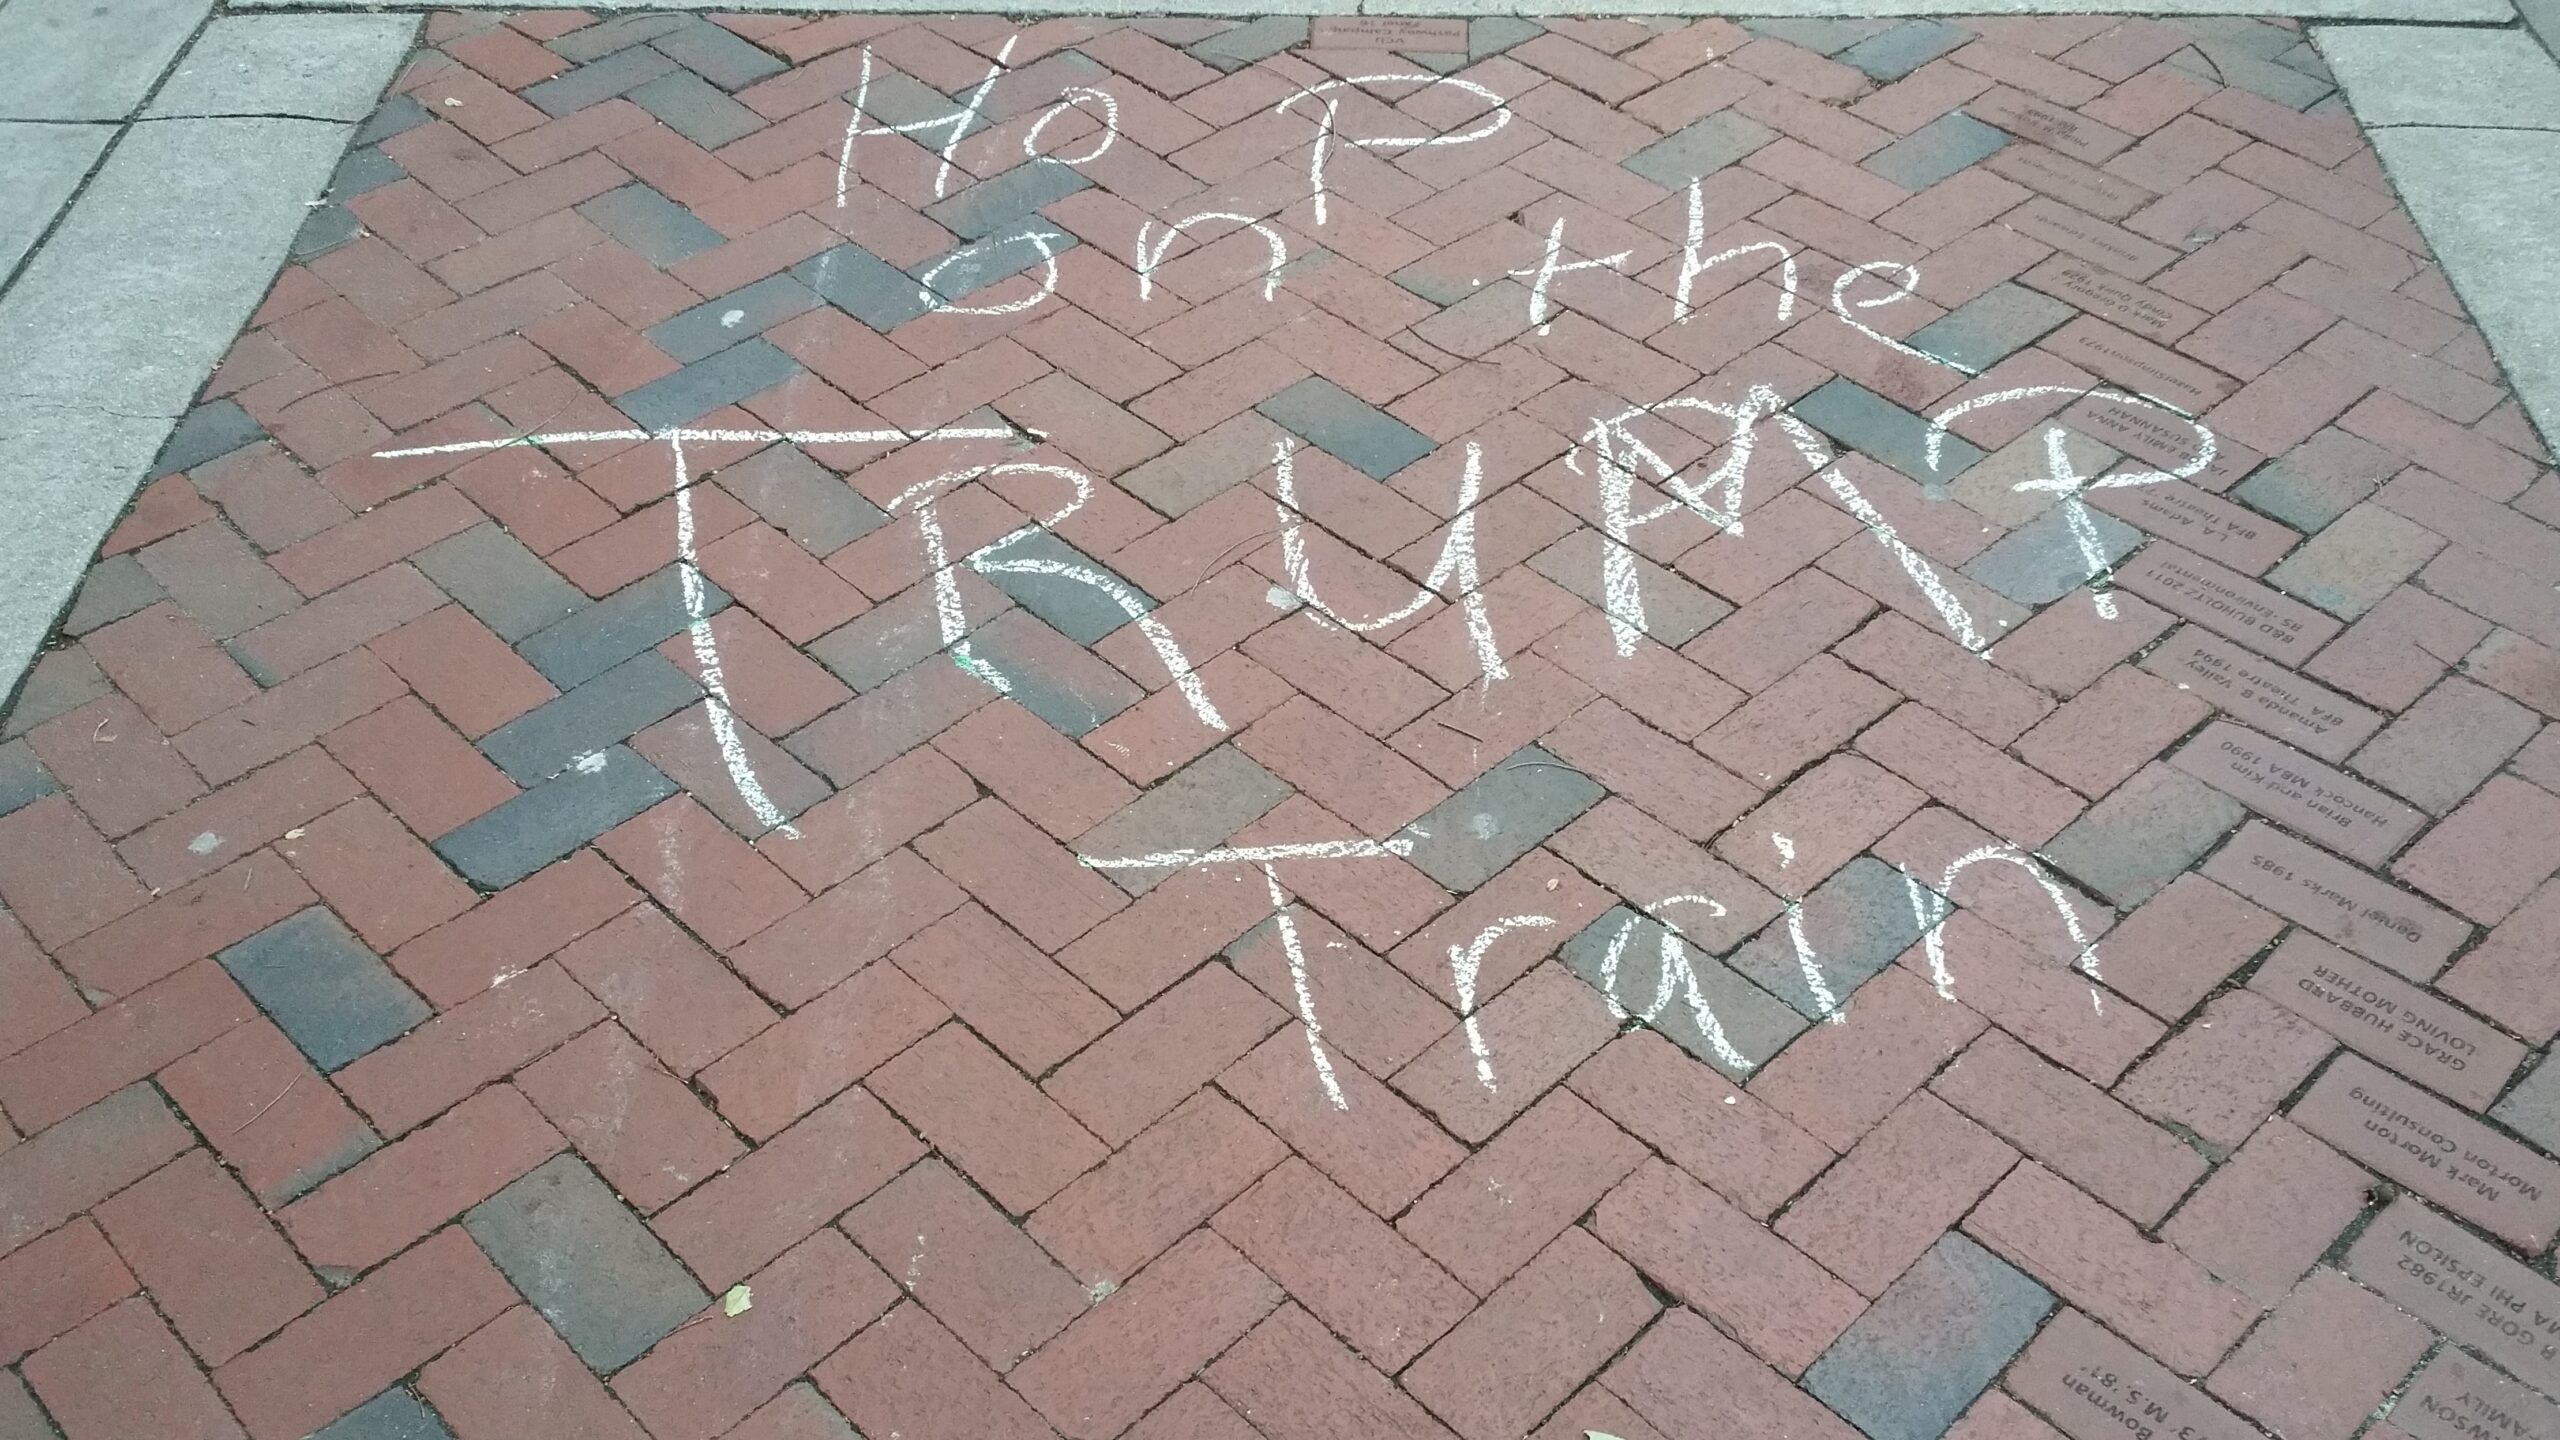 HoP
on the
TRUMP
Train
VCU
Pathway Campaign
Panel 16
Mark D Gregory
Cindy Quirk 1929
HazelSimpson1973
EMILY ANNA
SUSANNAH
L.A. Adams
BFA Theatre
B&D BUHOLTZ 2011
BS -Environmental
Amanda B Vailey
BFA Theatre 1994
Brian and Kim
Hancock MBA 1990
Daniel Marks 1985
GRACE HUBBARD
LOVING MOTHER
Mark Morton
Morton Consulting
GORE JR1982
MA PHI EPSILON
Bowman
M.S.'81